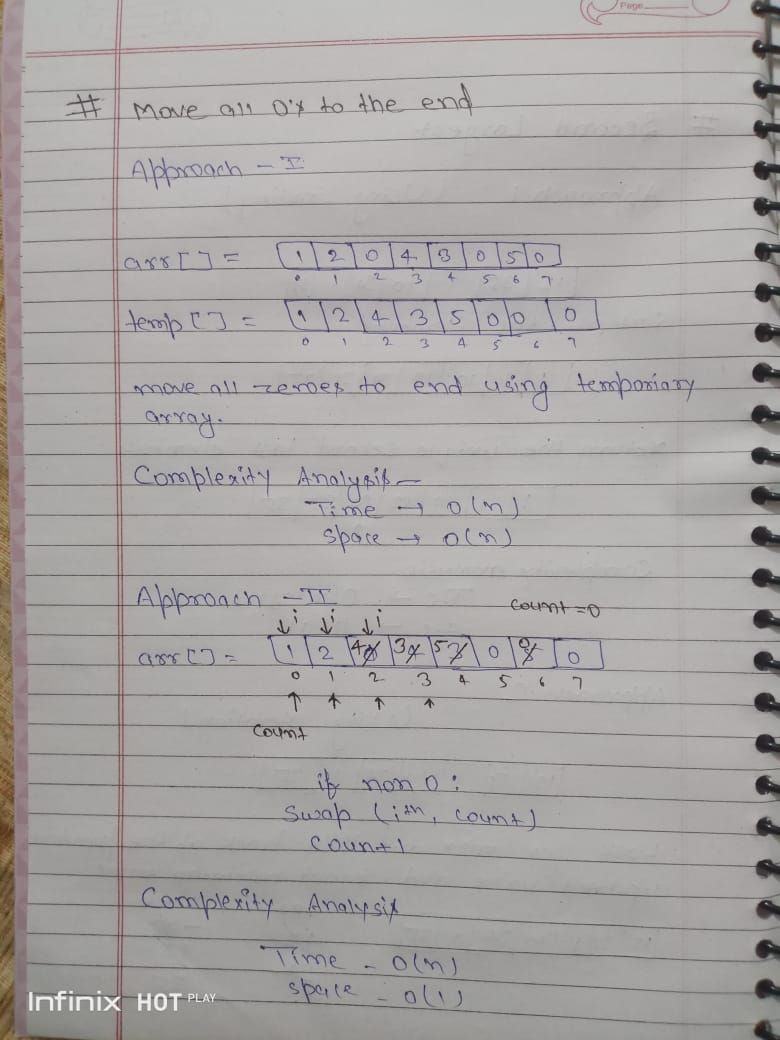 Page
# Move all 0's to the end
Approach - I
arr[] = 1 2 0 4 3 0 5 0
0 1 2 3 4 5 6 7
temp[] = 1 2 4 3 5 0 0 0
0 1 2 3 4 5 6 7
move all zeroes to end using temporiary
array.
Complexity Analysis -
Time → O(n)
Space → O(n)
Approach - II
count = 0
↓i ↓i ↓i
arr[] = 1 2 4 3 5 0 0 0
0 1 2 3 4 5 6 7
↑ ↑ ↑ ↑
Count
if non 0 :
Swap (ith, count)
Count
Complexity Analysis
Time - O(n)
Space - O(1)
Infinix HOT PLAY